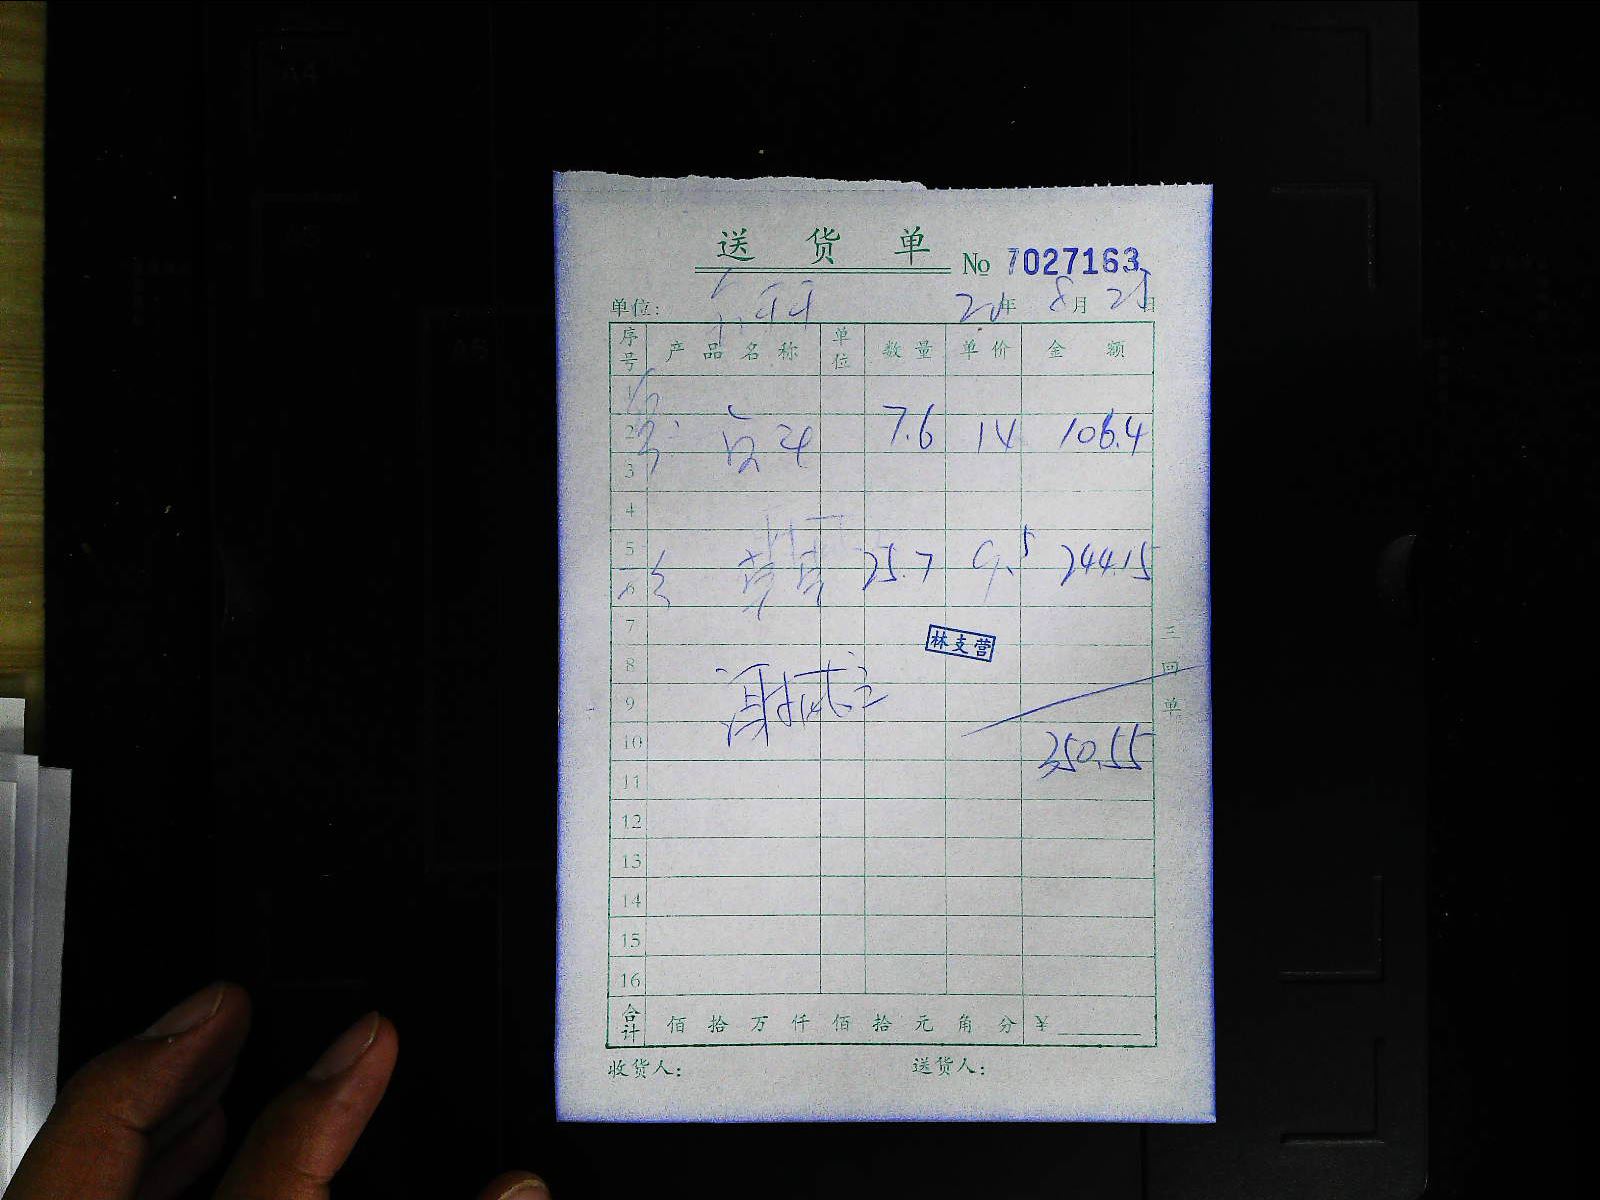 送 货 单 No 7027163
单位: 年 8月 日
序号 产品名称 单位 数量 单价 金额
1
2 7.6 14 106.4
3
4
5 25.7 9.5 244.15
6
7
林支营
8
三回单
9
10 350.55
11
12
13
14
15
16
合计 佰 拾 万 仟 佰 拾 元 角 分 ¥
收货人: 送货人: